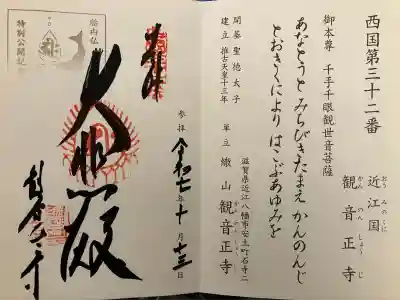 西国第三十二番
近江国
おうみのくに
観音正寺
かんのんしょうじ
御本尊 千手千眼観世音菩薩
あなとうと みちびきたまえ かんのんじ
とおきくにより はこぶあゆみを
開基 聖徳太子
建立 推古天皇十三年
滋賀県近江八幡市安土町石寺二
単立 繖山 観音正寺
かんのんしょうじ
参拝 令和七年十月十三日
奉拝
大悲殿
観音正寺
胎内仏
特別公開記